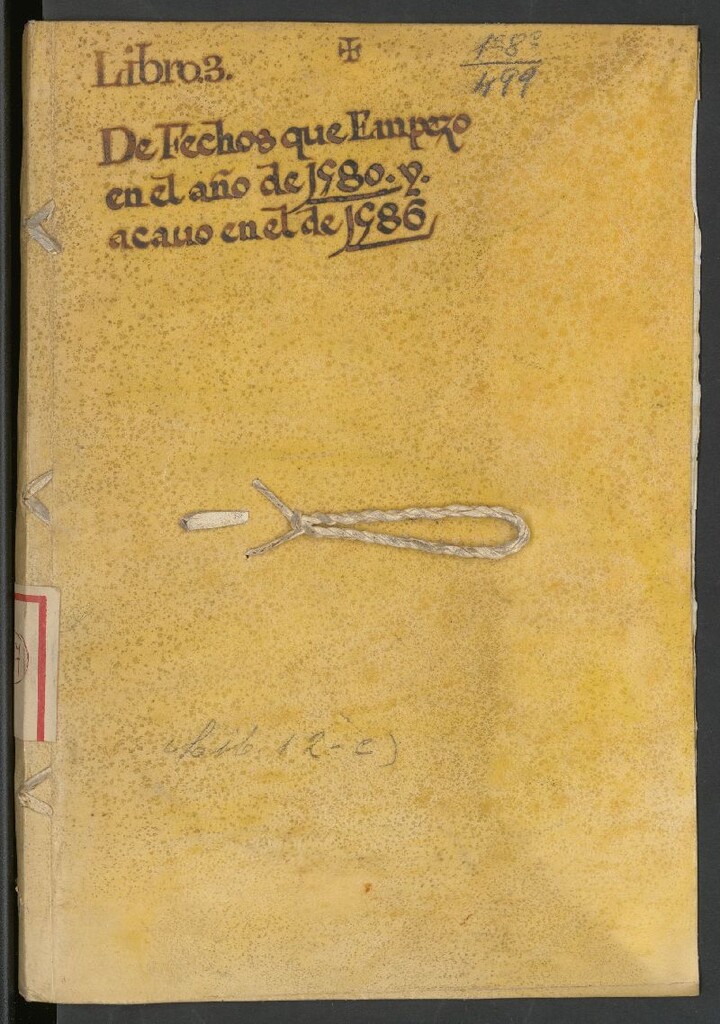 Libro.3.
De Fechos que Empezo
en el año de 1580. y.
acauo en el de 1586
499